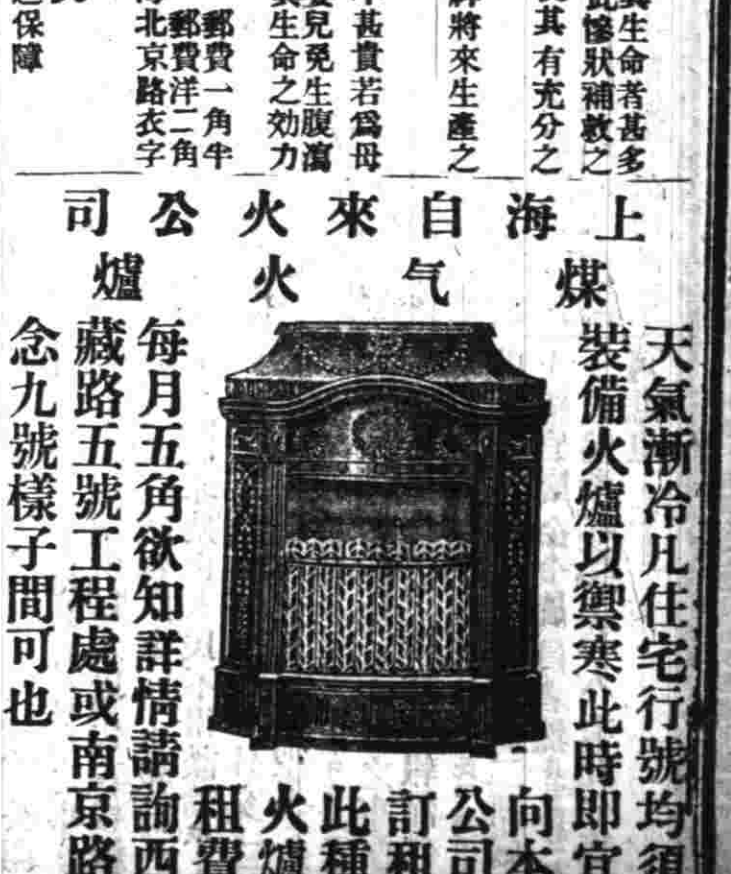 生命者甚多
此慘狀補救之
其有充分之
將來生產之
甚貴若爲母
兒免生腹瀉
生命之効力
郵費一角半
郵費洋二角
北京路衣字
保障
上海自來火公司
煤气火爐
天氣漸冷凡住宅行號均須
裝備火爐以禦寒此時即宜
向本
公司
訂租
此種
火爐
租費
每月五角欲知詳情請詢西
藏路五號工程處或南京路
念九號樣子間可也